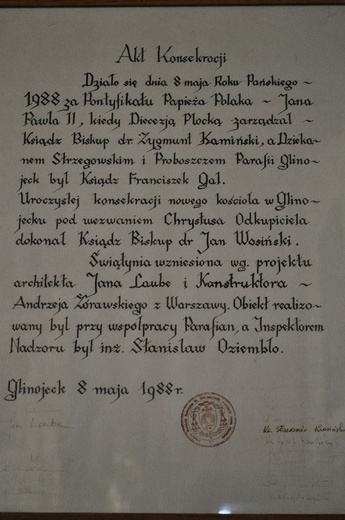 Akt Konsekracji
Działo się dnia 8 maja Roku Pańskiego ~
1988 za Pontyfikatu Papieża Polaka ~ Jana
Pawła II, kiedy Diecezją Płocką zarządzał ~
Ksiądz Biskup dr. Zygmunt Kamiński, a Dzieka-
nem Strzegowskim i Proboszczem Parafii Glino~
jeck był Ksiądz Franciszek Gal.
Uroczystej konsekracji nowego kościoła w Glino~
jecku pod wezwaniem Chrystusa Odkupiciela
dokonał Ksiądz Biskup dr Jan Wosiński.
Świątynia wzniesiona wg. projektu
architekta Jana Laube i Konstruktora ~
Andrzeja Żórawskiego z Warszawy. Obiekt realizo-
wany był przy współpracy Parafian, a Inspektorem
Nadzoru był inż. Stanisław Dziembło.
Glinojeck 8 maja 1988 r.